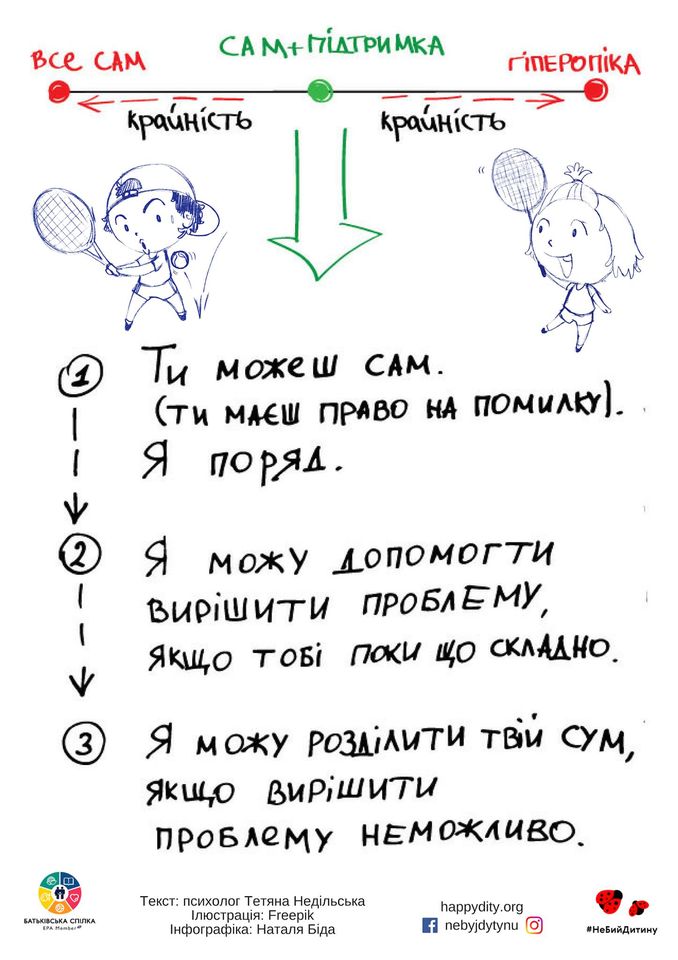 САМ+ПІДТРИМКА
ВСЕ САМ
ГІПЕРОПІКА
крайність
крайність
1
Ти можеш сам.
(ти маєш право на помилку).
Я поряд.
2
Я можу допомогти
вирішити проблему,
якщо тобі поки що складно.
3
Я можу розділити твій сум,
якщо вирішити
проблему неможливо.
БАТЬКІВСЬКА СПІЛКА
EPA Member
Текст: психолог Тетяна Недільська
Ілюстрація: Freepik
Інфографіка: Наталя Біда
happydity.org
nebyjdytynu
#НеБийДитину